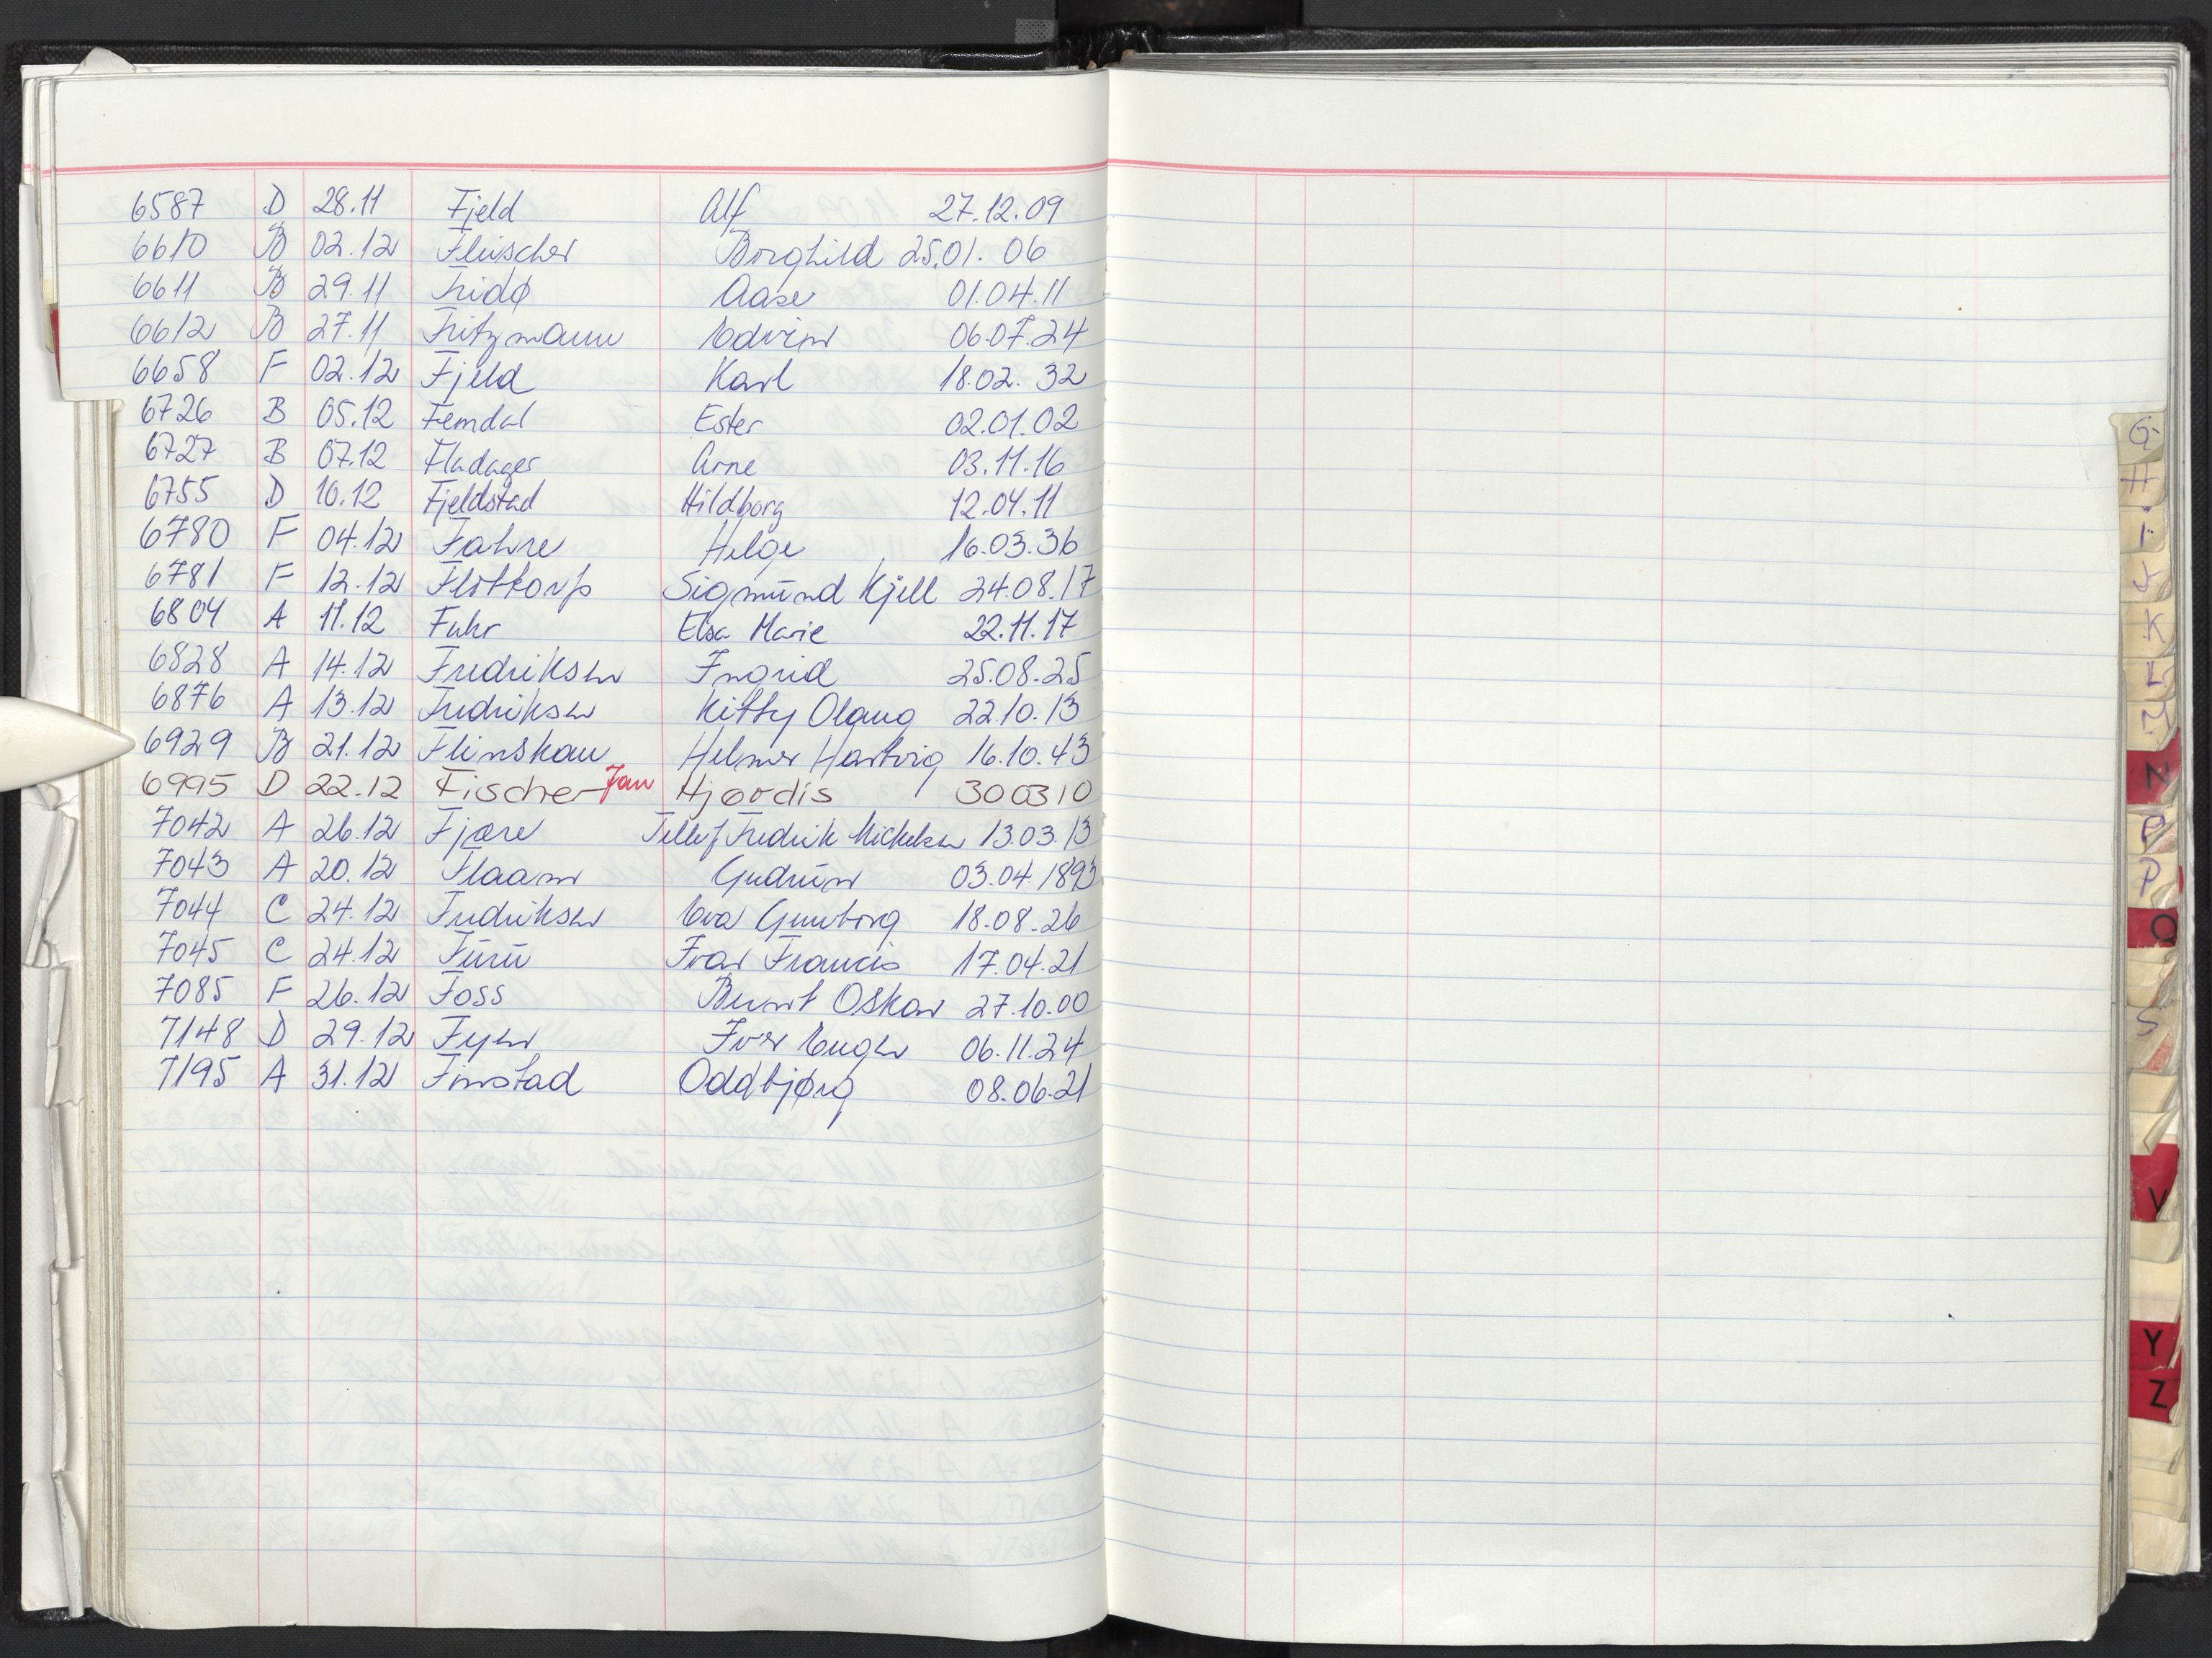 6587 D 28.11 Fjeld Alf 27.12.09
6610 B 02.12 Fleischer Borghild 25.01.06
6611 B 29.11 Fridø Aase 01.04.11
6612 B 27.11 Fritzmann Edvin 06.07.24
6658 F 02.12 Fjeld Karl 18.02.32
6726 B 05.12 Femdal Ester 02.01.02
6727 B 07.12 Fladager Arne 03.11.16
6755 D 10.12 Fjeldstad Hildborg 12.04.11
6780 F 04.12 Fahre Helge 16.03.36
6781 F 12.12 Flotkorp Sigmund Kjell 24.08.17
6804 A 11.12 Fuhr Elsa Marie 22.11.17
6828 A 14.12 Fredriksen Ingrid 25.08.25
6876 A 13.12 Fredriksen Kitty Olaug 22.10.13
6929 B 21.12 Flinskau Helmer Hartvig 16.10.43
6995 D 22.12 Fischer Jan Hjørdis 300310
7042 A 26.12 Fjære Tellef Fredrik Mickelsen 13.03.13
7043 A 20.12 Flaam Gudrun 03.04.1893
7044 C 24.12 Fredriksen Eva Gunborg 18.08.26
7045 C 24.12 Furu Ivar Francis 17.04.21
7085 F 26.12 Foss Bernt Oskar 27.10.00
7148 D 29.12 Fyen Iver Eugen 06.11.24
7195 A 31.12 Finstad Oddbjørg 08.06.21
G
H
I
J
K
L
M
N
P
Q
S
V
Y
Z